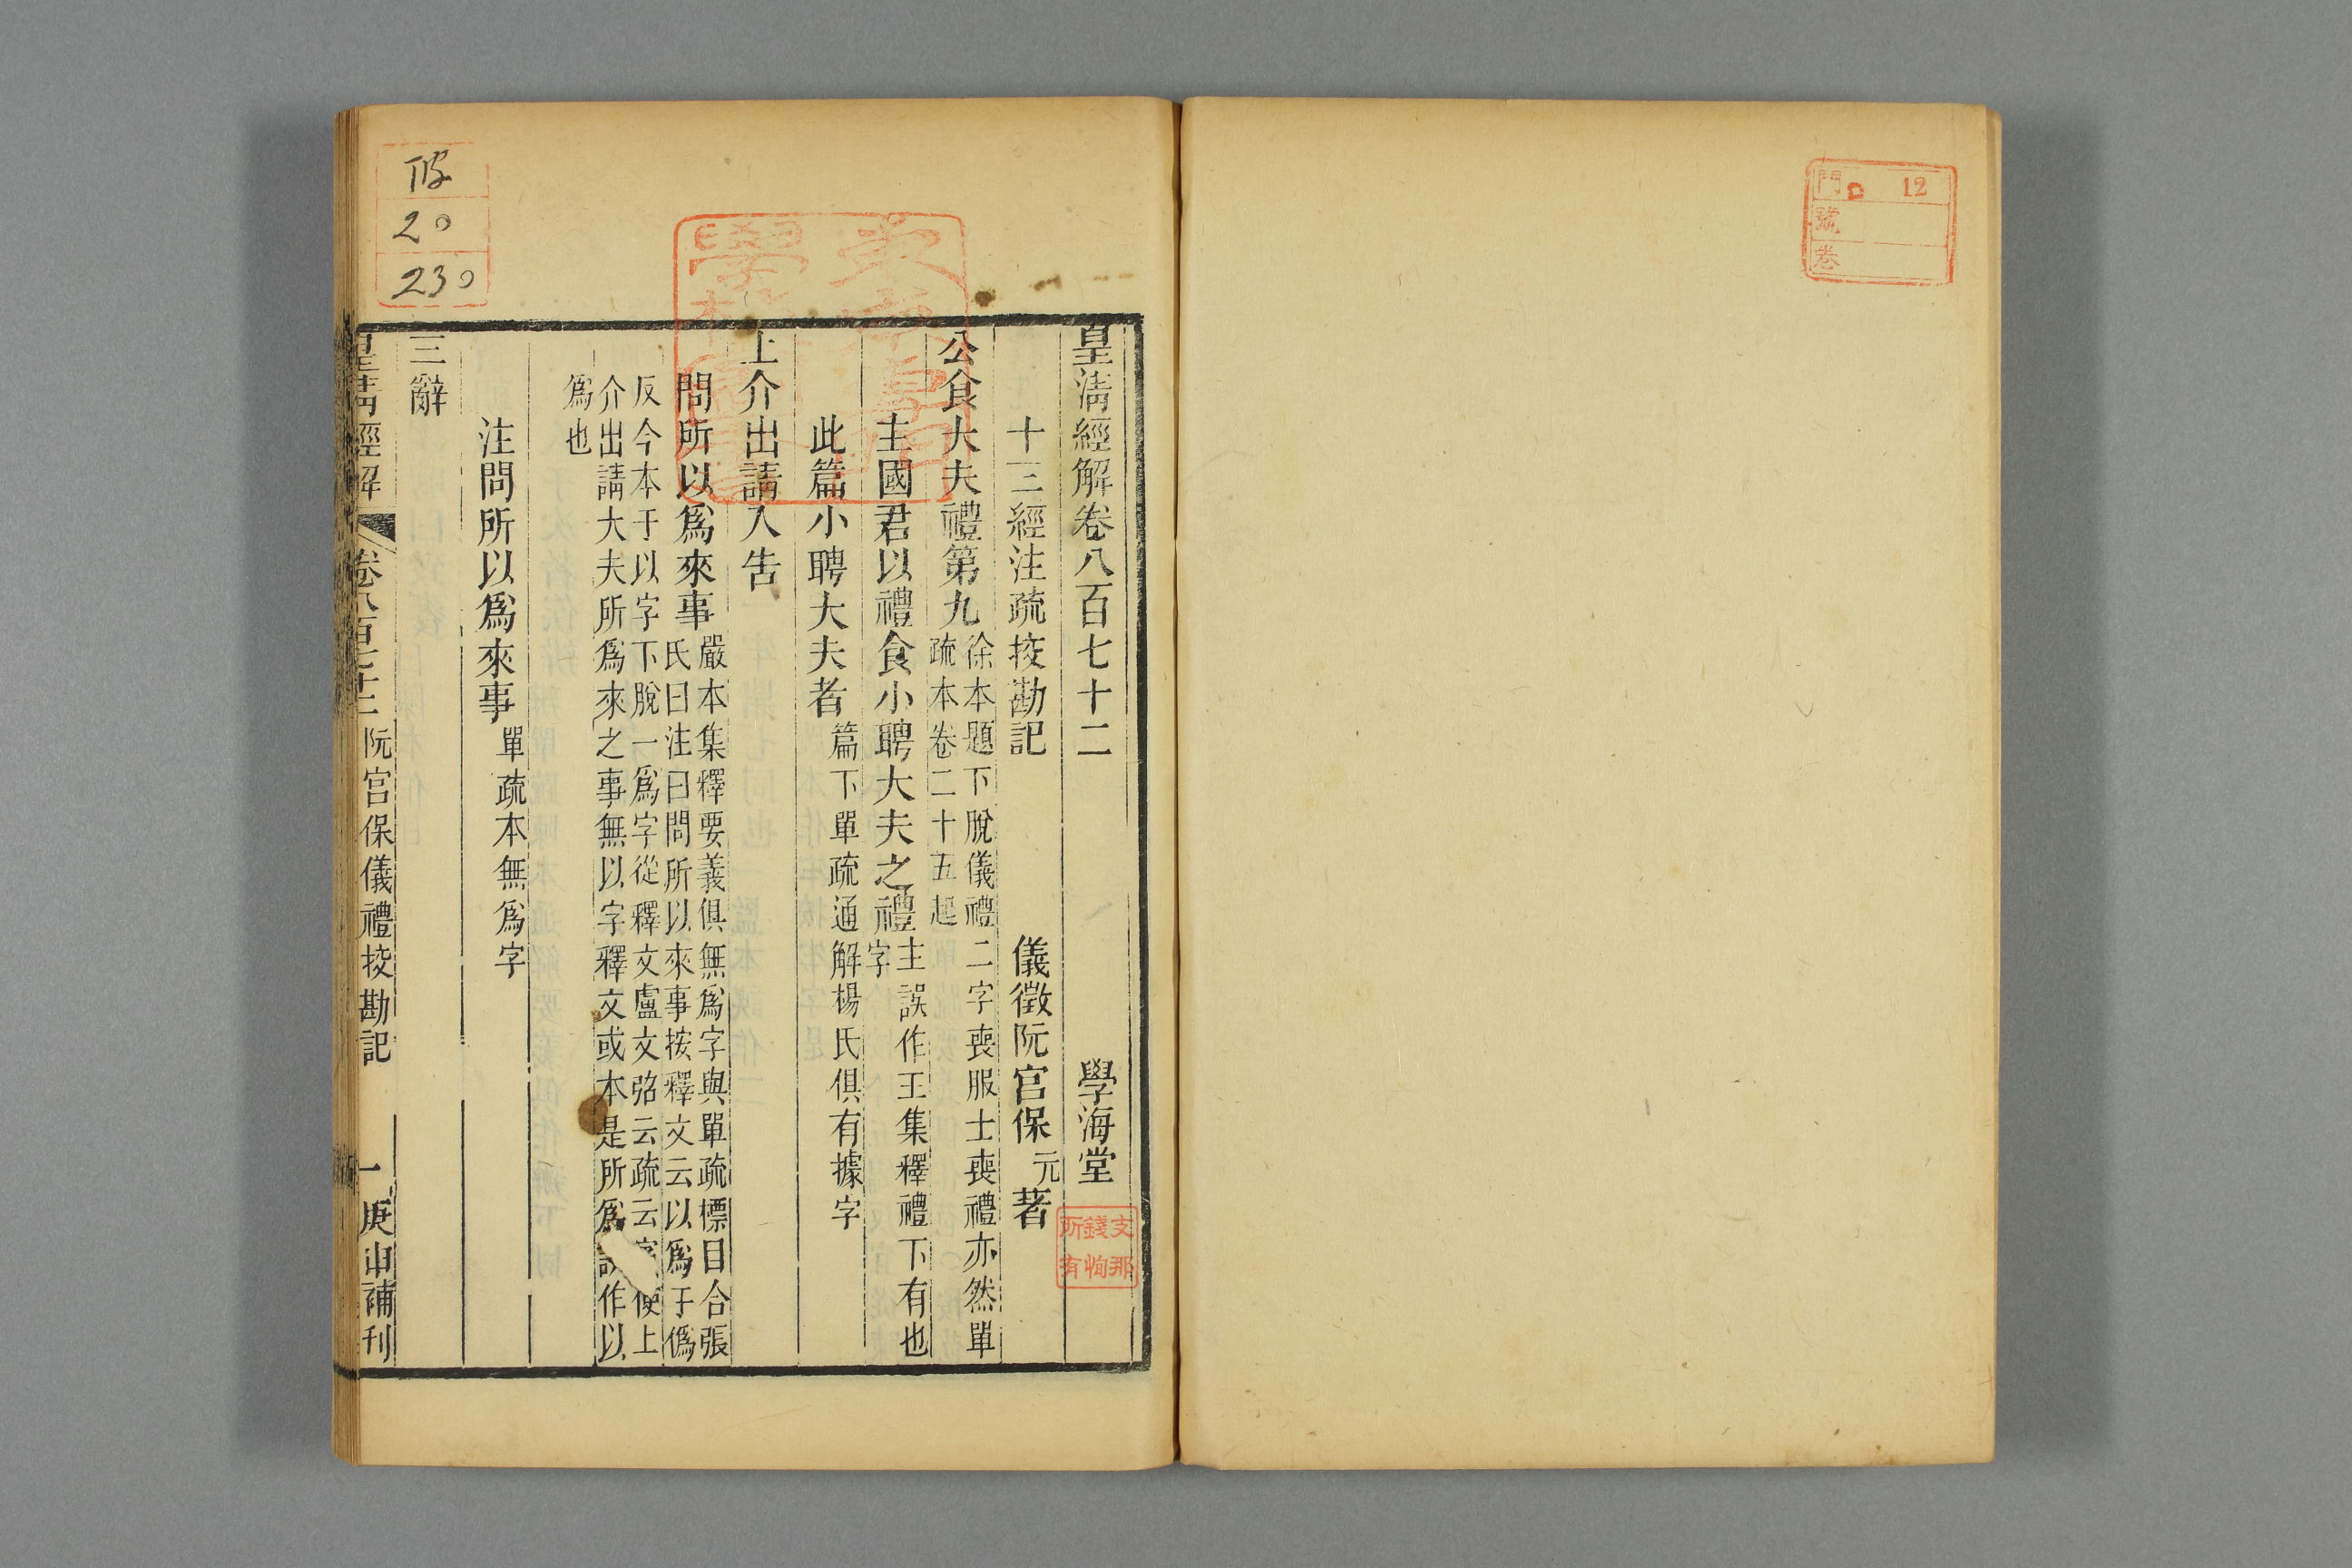 門 12
號
卷
皇淸經解卷八百七十二 學海堂
十三經注疏挍勘記 儀徵阮宮保元著
公食大夫禮第九
徐本題下脫儀禮二字喪服士喪禮亦然單
疏本卷二十五起
主國君以禮食小聘大夫之禮
主誤作王集釋禮下有也
字
此篇小聘大夫者
篇下單疏通解楊氏俱有據字
上介出請入告
問所以爲來事
嚴本集釋要義俱無爲字與單疏標目合張
氏曰注曰問所以來事按釋文云以爲于僞
反今本于以字下脫一爲字從釋文盧文弨云疏云使上
介出請大夫所爲來之事無以字釋文或本是所爲作以
爲也
注問所以爲來事
單疏本無爲字
三辭
皇淸經解 卷八百七十二 阮宮保儀禮挍勘記 一 庚申補刊
支那
錢恂
所有
20
230